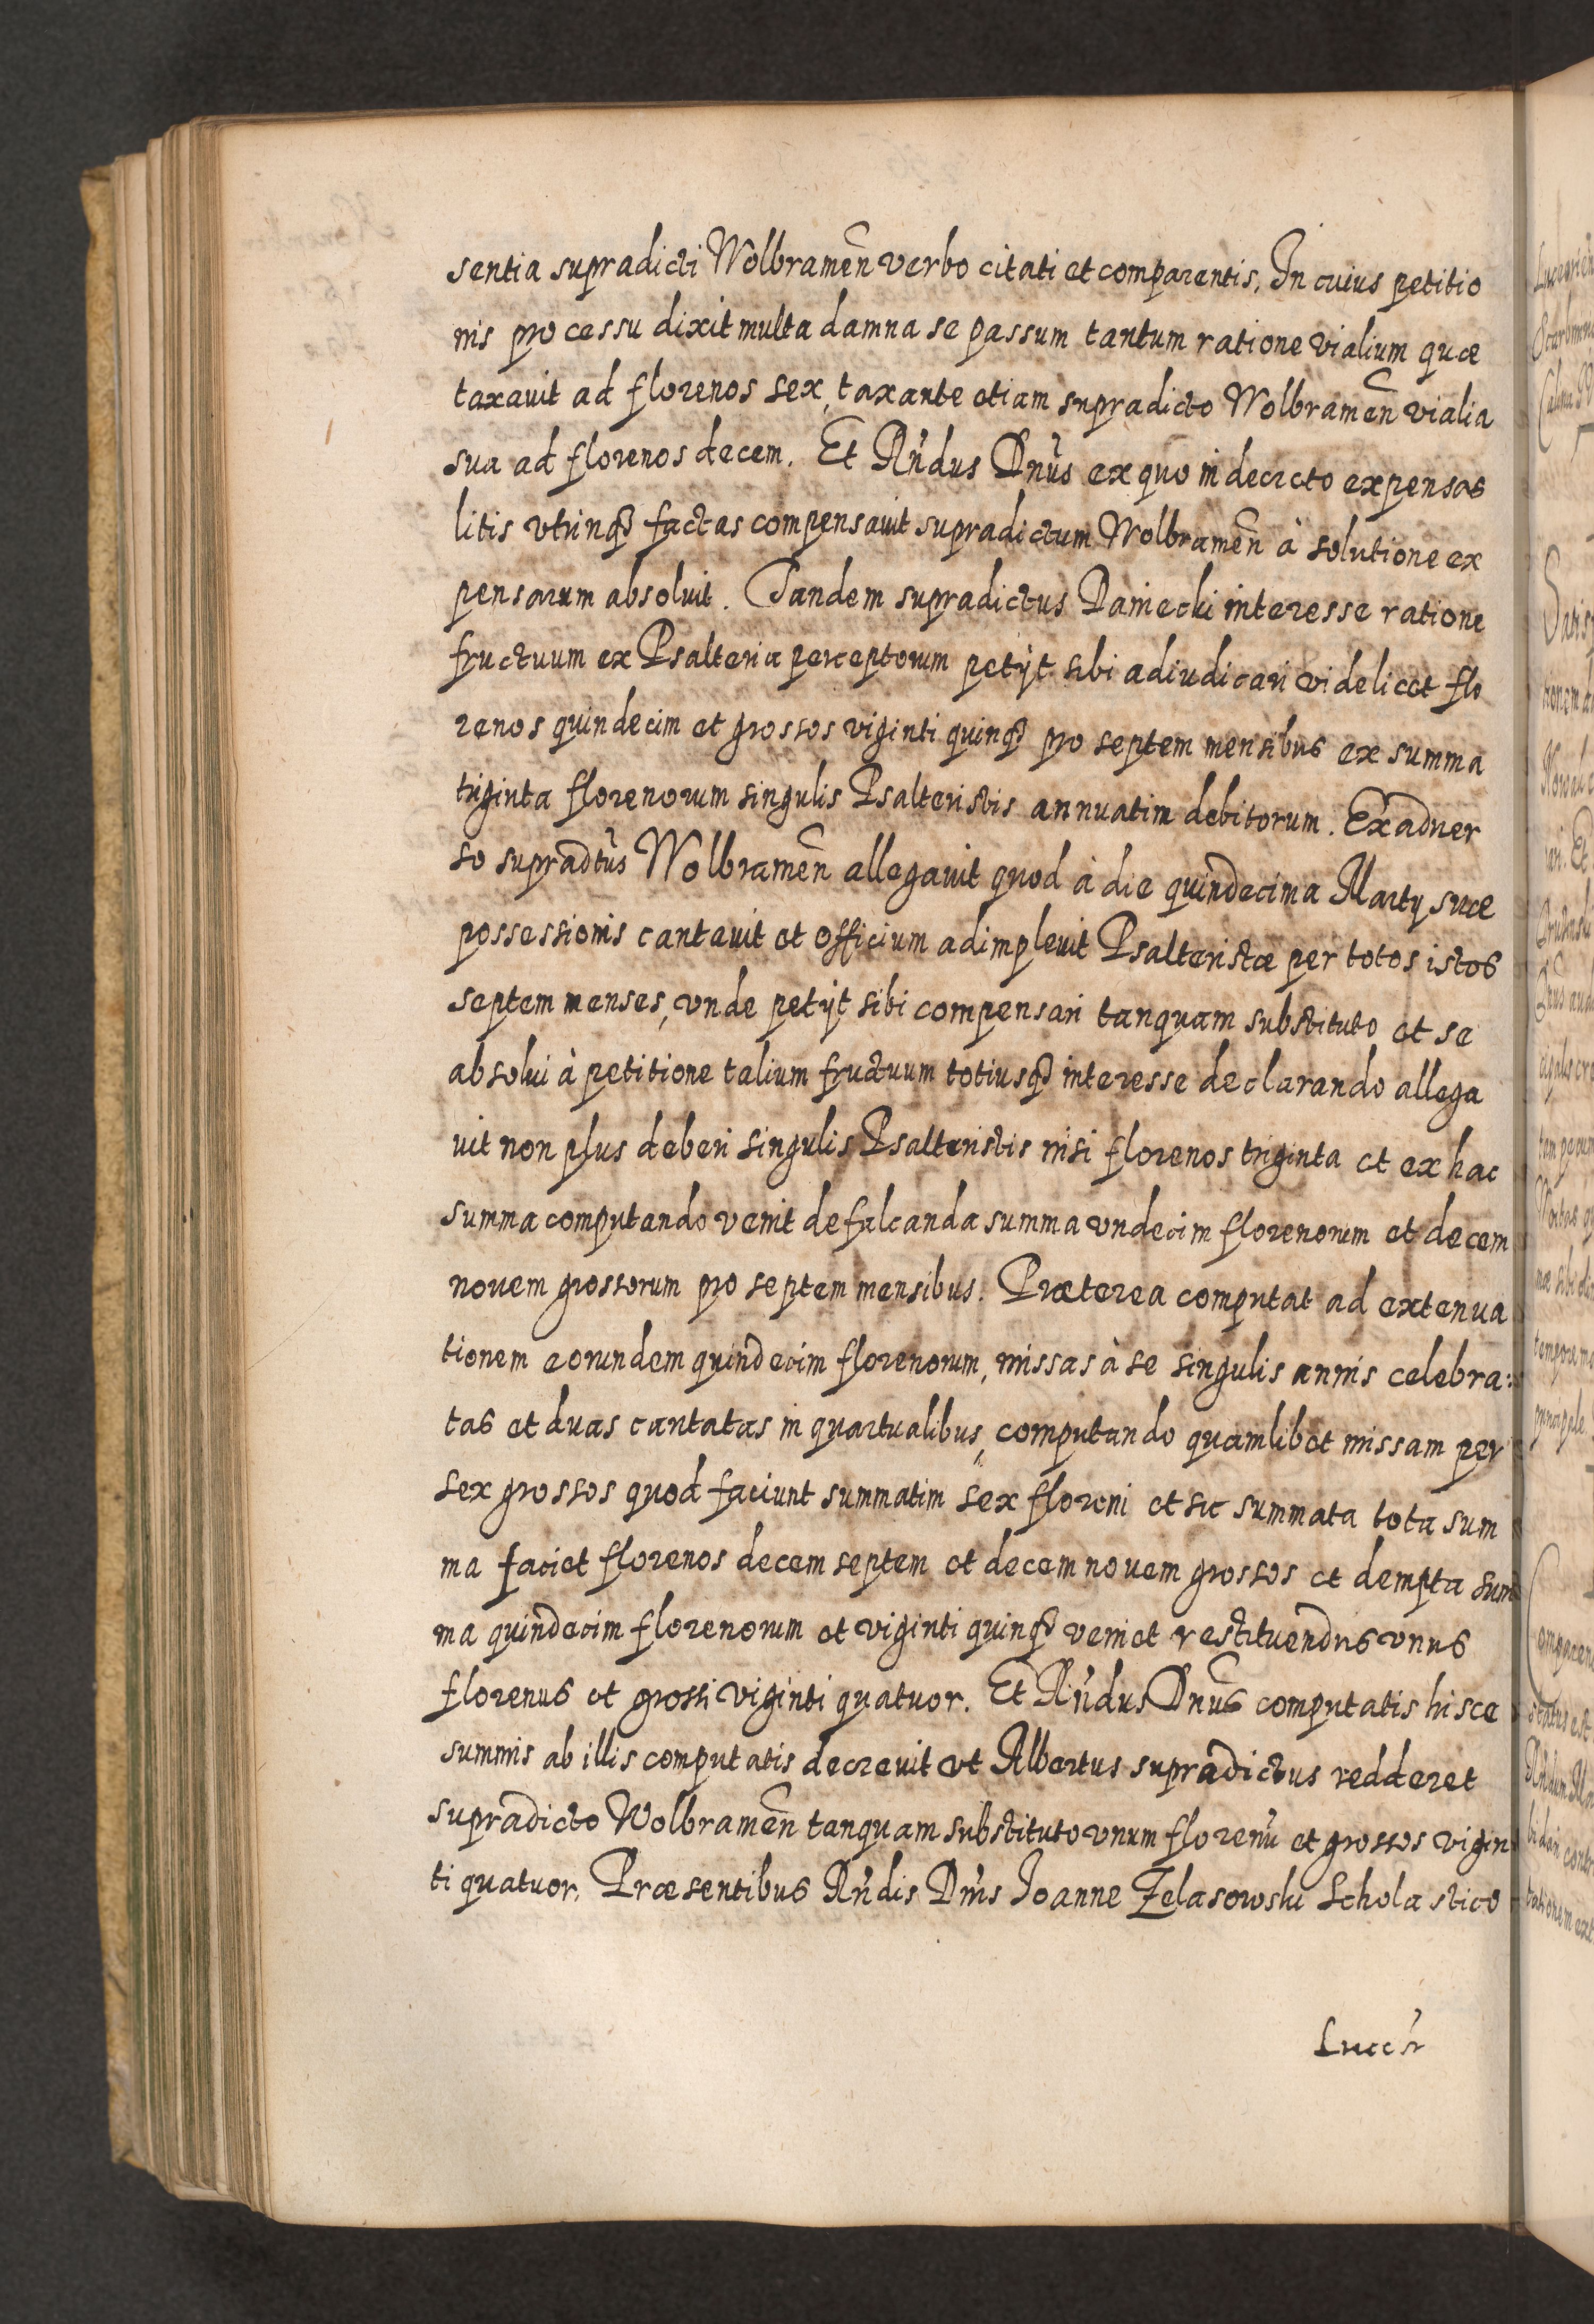 sentia supradicti Wolbramen̄ verbo citati et comparentis, In cuius petitio
nis processu dixit multa damna se passum tantum ratione vialium quæ
taxavit ad florenos sex, taxante etiam supradicto Wolbramen̄ vialia
sua ad florenos decem. Et Rn̄dus Dn̄us ex quo in decreto expensas
litis vtrinqꝫ factas compensavit supradictum Wolbramen̄ à solutione ex
pensarum absoluit. Tandem supradictus Daniecki interesse ratione
fructuum ex Psalteria perceptorum petÿt sibi adiudicari videlicet flo
renos quindecim et grossos viginti quinqꝫ pro septem mensibus ex summa
triginta florenorum singulis Psalteristis annuatim debitorum. Ex aduer
so supradt̄us Wolbramen̄ allegavit quod à die quindecima Martÿ suæ
possessionis cantavit et officium adimplevit Psalteristæ per totos istos
septem menses, vnde petÿt sibi compensari tanquam substituto et se
absolui à petitione talium fructuum totiusqꝫ interesse declarando allega
uit non plus deberi singulis Psalteristis nisi florenos triginta et ex hac
summa computando venit defalcanda summa vndecim florenorum et decem
novem grossorum pro septem mensibus. Præterea computat ad extenua
tionem eorundem quindecim florenorum, missas à se singulis annis celebra:
tas et duas cantatas in quartualibus, computando quamlibet missam per
sex grossos quod faciunt summatim sex floreni et sic summata tota sum
ma faciet florenos decem septem et decem novem grossos et dempta sum
ma quindecim florenorum et viginti quinqꝫ veniet restituendus vnus
florenus et grossi viginti quatuor. Et Rn̄dus Dn̄us computatis hisce
summis ab illis computatis decrevit vt Albertus supradictus redderet
supradicto Wolbramen̄ tanquam substituto vnum florenū et grossos vigin
ti quatuor. Præsentibus Rn̄dis Dn̄is Joanne Zelasowski Scholastico